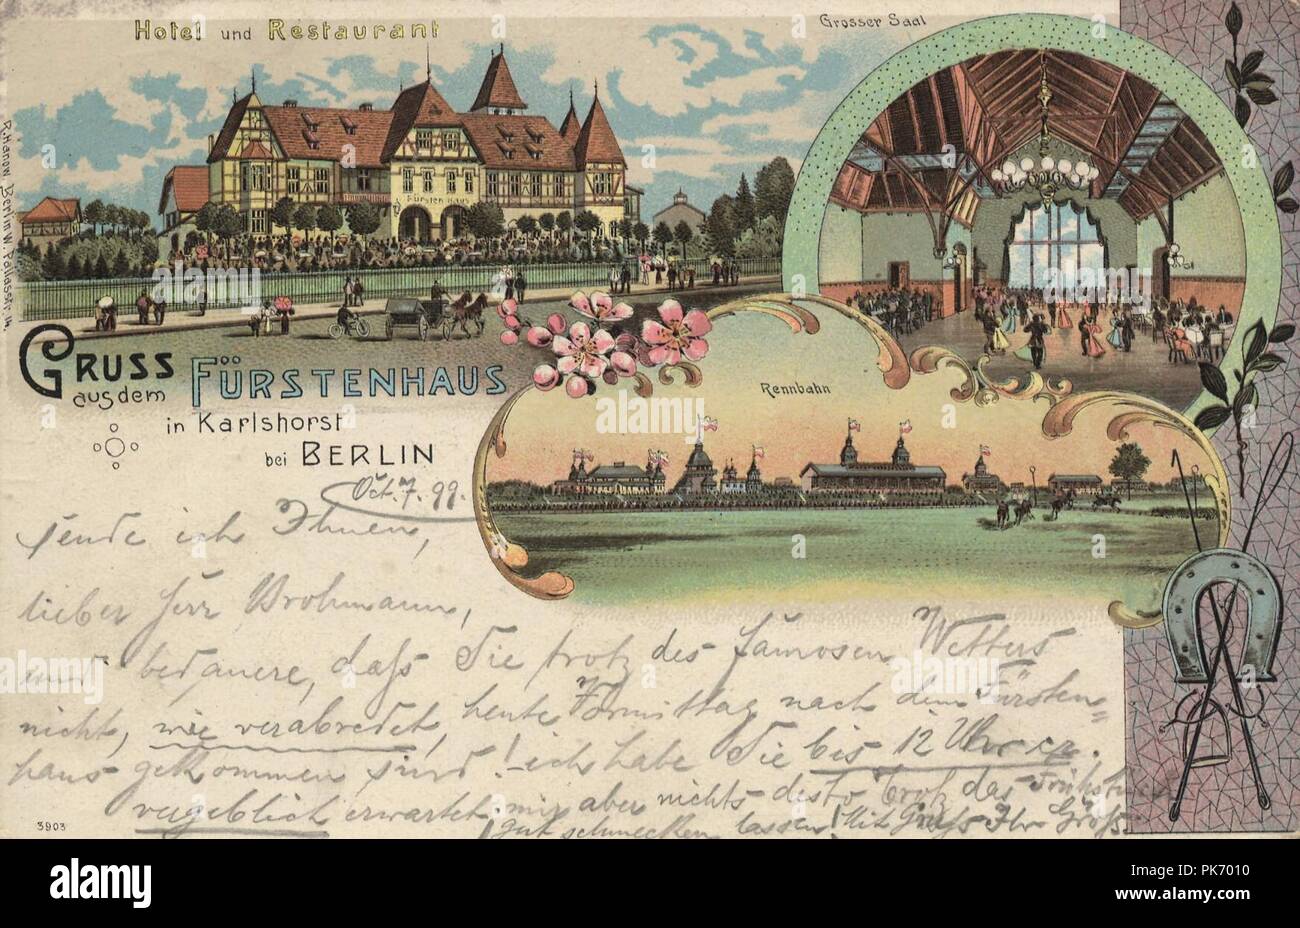 Hotel und Restaurant
Grosser Saal
Fürstenhaus
R. Hanow, Berlin W.
Gruss
aus dem FÜRSTENHAUS
in Karlshorst
bei BERLIN
Rennbahn
Oct. 7. 99.
sende ich Ihnen,
lieber Herr Brohmann,
und bedauere, daß Sie trotz des famosen Wetters
nicht, wie verabredet, heute Vormittag nach dem Fürsten=
haus gekommen sind! ich habe Sie bis 12 Uhr ca.
vergeblich erwartet, mir aber nichts desto trotz das Frühstück
gut schmecken lassen! Mit Gruß Ihr
3903
alamy
Image ID: PK7010
www.alamy.com